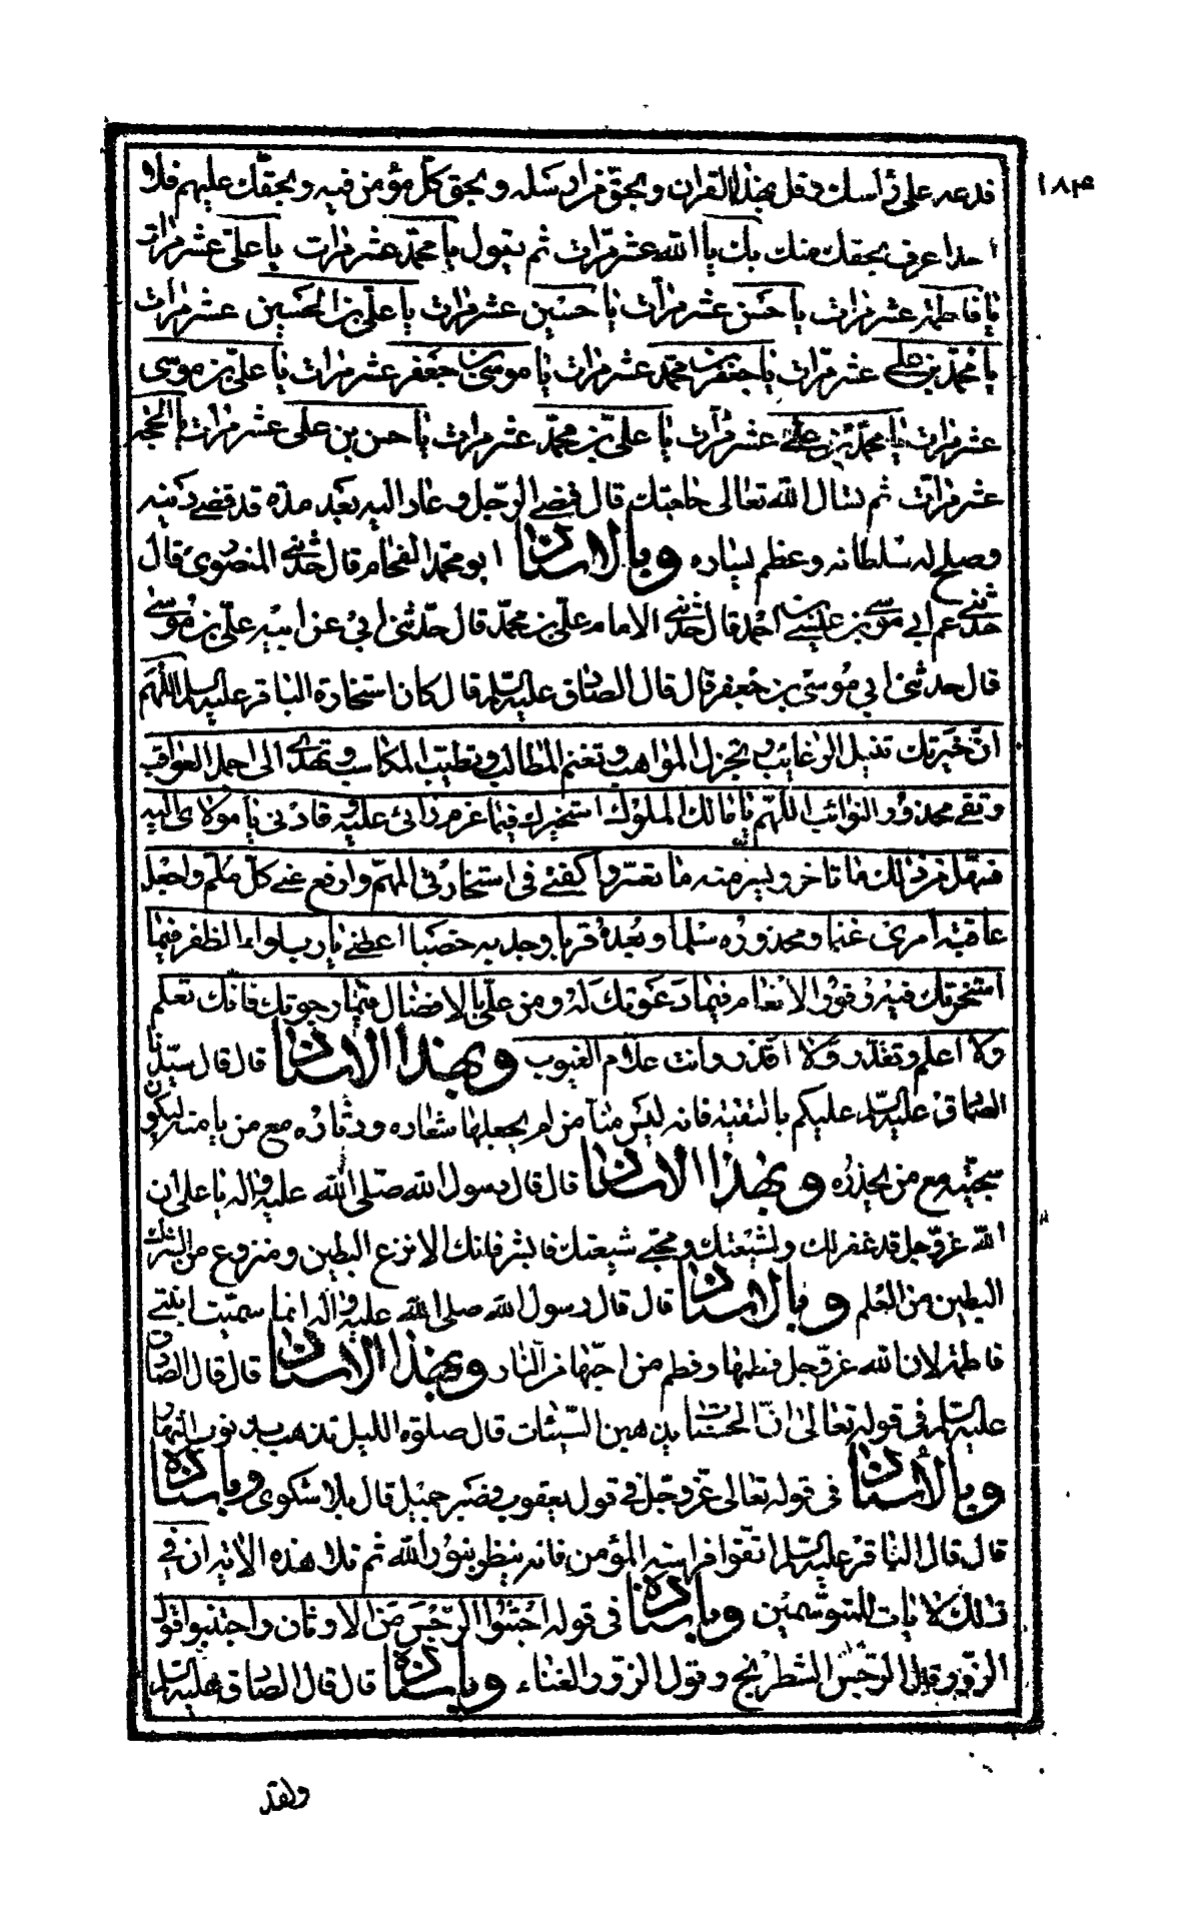 ١٨٤
فدعه على رأسك و قل بهذا القران و بحق من ارسله و بحق كل مؤمن فيه و بحقك عليهم فلا
احد اعرف بحقك منك بك يا الله عشر مرات ثم يقول يا محمد عشر مرات يا على عشر مرات
يا فاطمة عشر مرات يا حسن عشر مرات يا حسين عشر مرات يا على بن الحسين عشر مرات
يا محمد بن على عشر مرات يا جعفر بن محمد عشر مرات يا موسى بن جعفر عشر مرات يا على بن موسى
عشر مرات يا محمد بن على عشر مرات يا على بن محمد عشر مرات يا حسن بن على عشر مرات يا الحجة
عشر مرات ثم تسال الله تعالى حاجتك قال فمضى الرجل و عاد اليه بعد مدة قد قضى دينه
وصلح له سلطانه وعظم يساره وبالاسناد ابو محمد الفحام قال حدثنى المنصورى قال
حدثنى عم ابى موسى بن عيسى بن احمد قال حدثنى الامام على بن محمد قال حدثنى ابى عن ابيه على بن موسى
قال حدثنى ابى موسى بن جعفر قال قال الصادق عليه السلم قال كان استخارة الباقر عليه السلم اللهم
ان خيرتك تنيل الرغائب و تجزل المواهب و تغنم المطالب و تطيب المكاسب و تهدى الى احمد العواقب
و تقى محذور النوائب اللهم يا مالك الملوك استخيرك فيما عزم رائى عليه و قادنى يا مولاى اليه
فسهل من ذلك ما تاخر و يسر منه ما تعسر و اكفنى فى استخارتى المهم و ارفع عنى كل ملم و اجعل
عاقبة امرى غنما و محذوره سلما و بعده قربا و جدبه خصبا اعطنى يا رب لواء الظفر فيما
استخرتك فيه و فوز الانعام فيما دعوتك له و من على بالافضال فيما رجوتك فانك تعلم
ولا اعلم و تقدر ولا اقدر وانت علام الغيوب وبهذا الاسناد قال قال سيدنا
الصادق عليه السلم عليكم بالتقية فانه ليس منا من لم يجعلها شعاره و دثاره مع من يامنه ليكون
سجيته مع من يحذره وبهذا الاسناد قال قال رسول الله صلى الله عليه واله يا على ان
الله عز وجل قد غفر لك ولشيعتك و محبى شيعتك فابشر فانك الانزع البطين و منزوع من الشرك
البطين من العلم وبالاسناد قال قال رسول الله صلى الله عليه واله انما سميت ابنتى
فاطمة لان الله عز وجل فطمها و فطم من احبها من النار وبهذا الاسناد قال قال الصادق
عليه السلم فى قوله تعالى ان الحسنات يذهبن السيئات قال صلوة الليل تذهب بذنوب النهار
وبالاسناد فى قوله تعالى عز وجل فى قول يعقوب فصبر جميل قال بلا شكوى و باسناده
قال قال الباقر عليه السلم اتقوا فراسة المؤمن فانه ينظر بنور الله ثم تلا هذه الاية ان فى
ذلك لايات للمتوسمين وباسناده فى قوله اجتنبوا الرجس من الاوثان واجتنبوا قول
الزور و قال الرجس الشطرنج و قول الزور الغناء وباسناده قال قال الصادق عليه السلم
ولقد